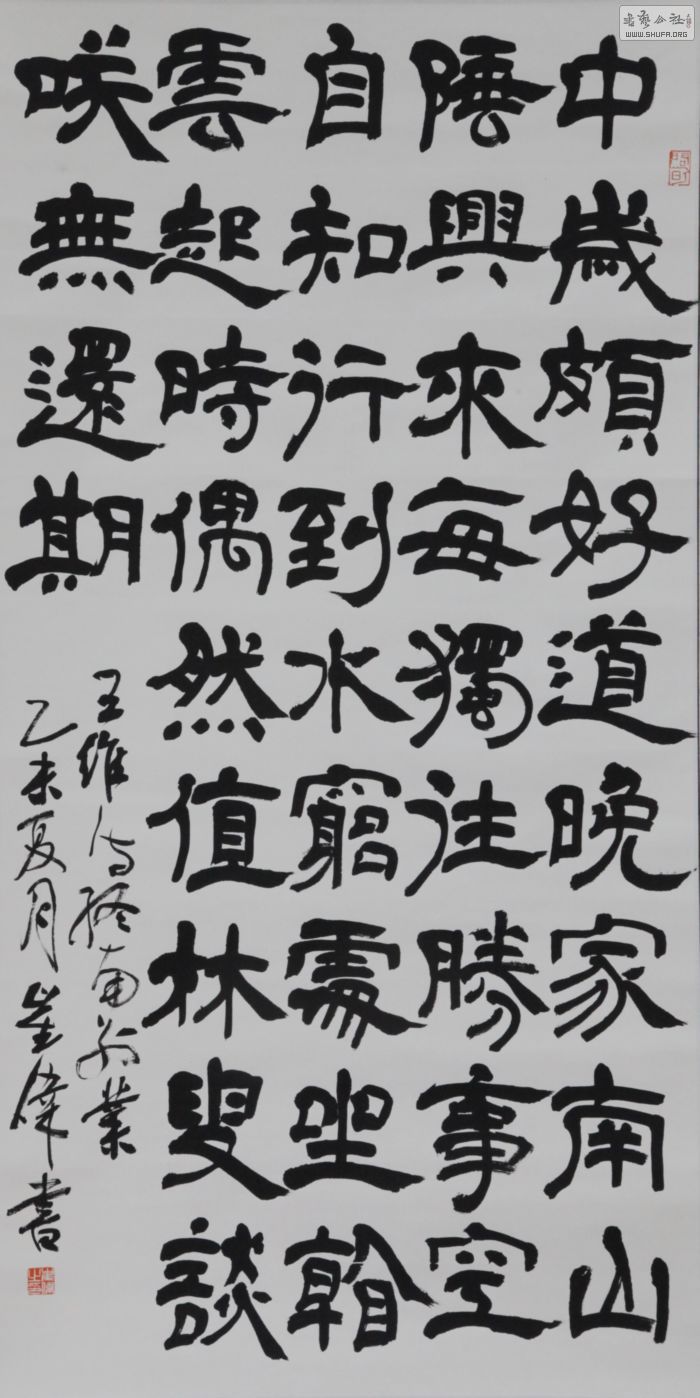 中歲頗好道晚家南山
陲興來每獨往勝事空
自知行到水窮處坐看
雲起時偶然值林叟談
咲無還期
王維詩終南別業
乙未夏月崔偉書
书艺公社
WWW.SHUFA.ORG